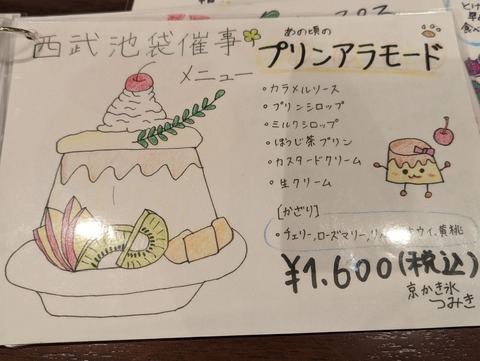 西武池袋催事
メニュー
あの頃の
プリンアラモード
• カラメルソース
• プリンシロップ
• ミルクシロップ
• ほうじ茶プリン
• カスタードクリーム
• 生クリーム
[かざり]
• チェリー、ローズマリー、キウイ、黄桃
¥1.600(税込)
京かき氷
つみき